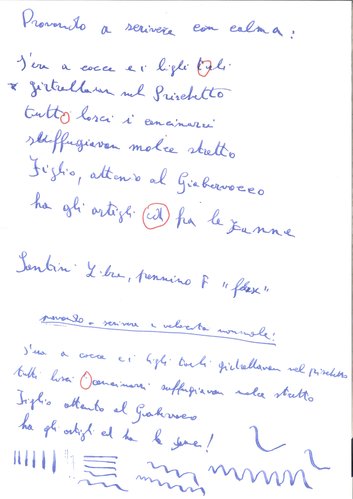 Provando a scrivere con calma:
s'era a cocce e i ligli tarli
girtrellavan nel Prischetto
tutto losci i cincinarri
suffuggiavan molce stretto
Figlio, attenio al Giabervocco
ha gli artigli ed ha le zanne
Santini Libra, pennino F "flex"
provando a scrivere a velocità normale:
s'era a cocce e i ligli tarli girtrellavan nel prischetto
tutti losci i cincinarri suffuggiavan molce stretto
Figlio attento al Giabervoco
ha gli artigli ed ha le zanne!